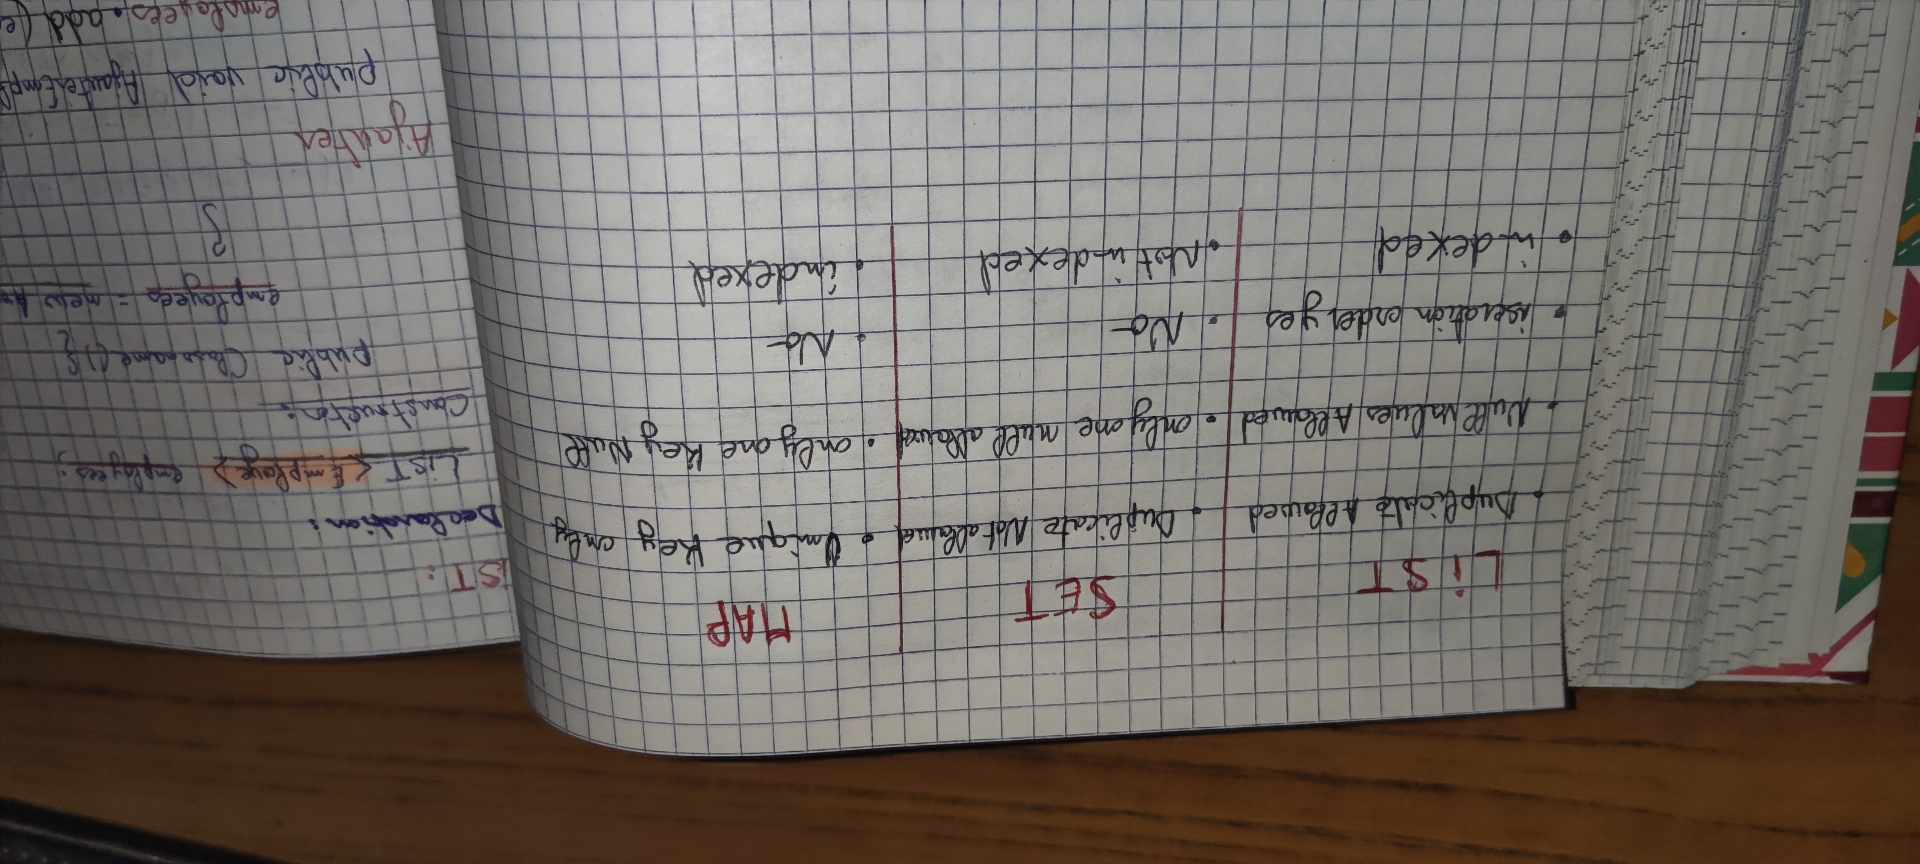 LiST
SET
MAP
• Duplicate Allowed
• Duplicate Not allowed
• Unique Key only
• Null values Allowed
• only one null allowed
• only one Key Null
• iteration order yes
• No
• No
• indexed
• Not indexed
• indexed
iST:
Declaration:
LiST <Employe> employees;
Constructor:
public Classname () {
employees = new
}
Ajouter
public void AjouterEmpl
employees.add (e